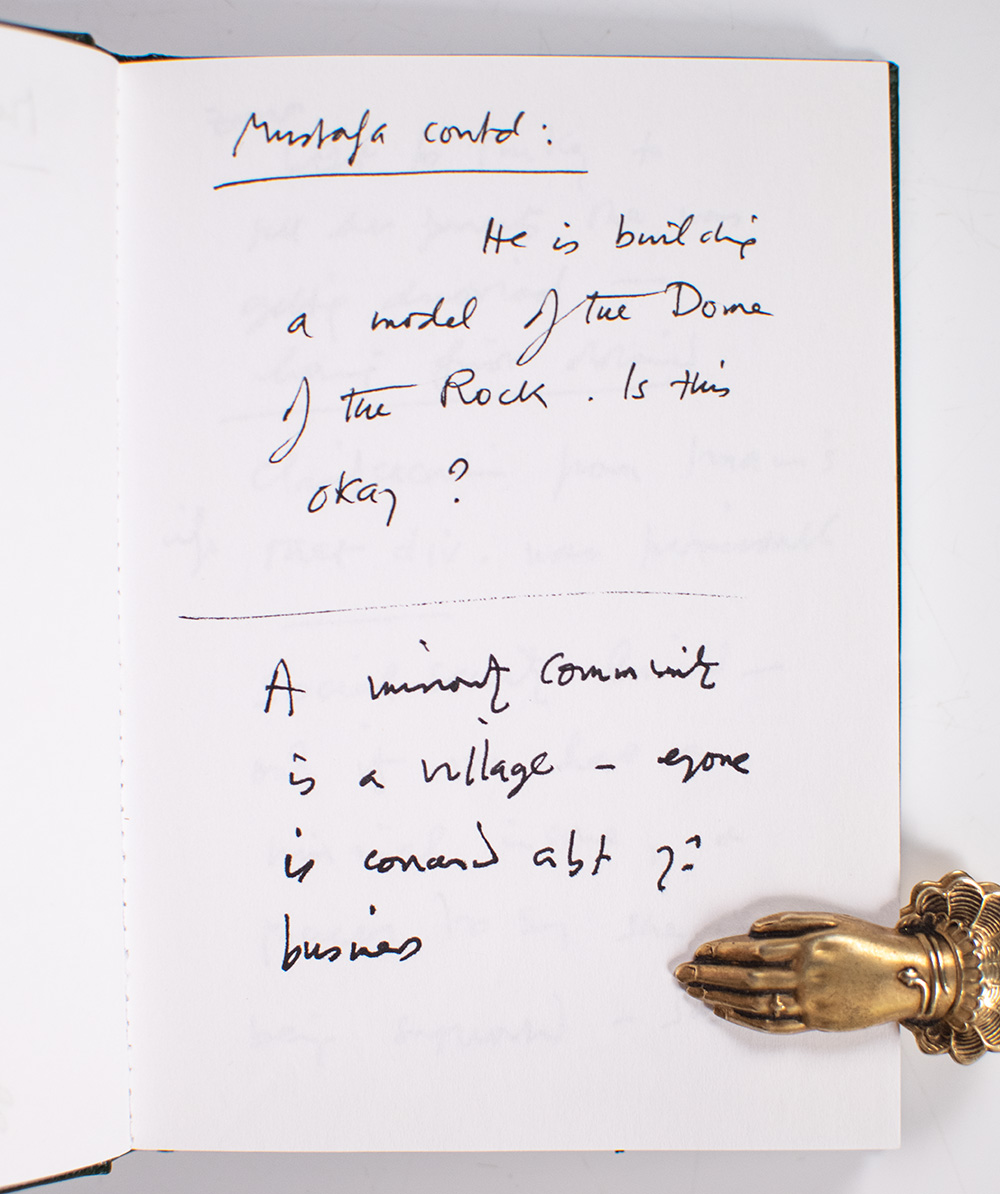 Mustafa contd:
He is building
a model of the Dome
of the Rock. Is this
okay?
A minority community
is a village – eyone
is concerned abt yr
business